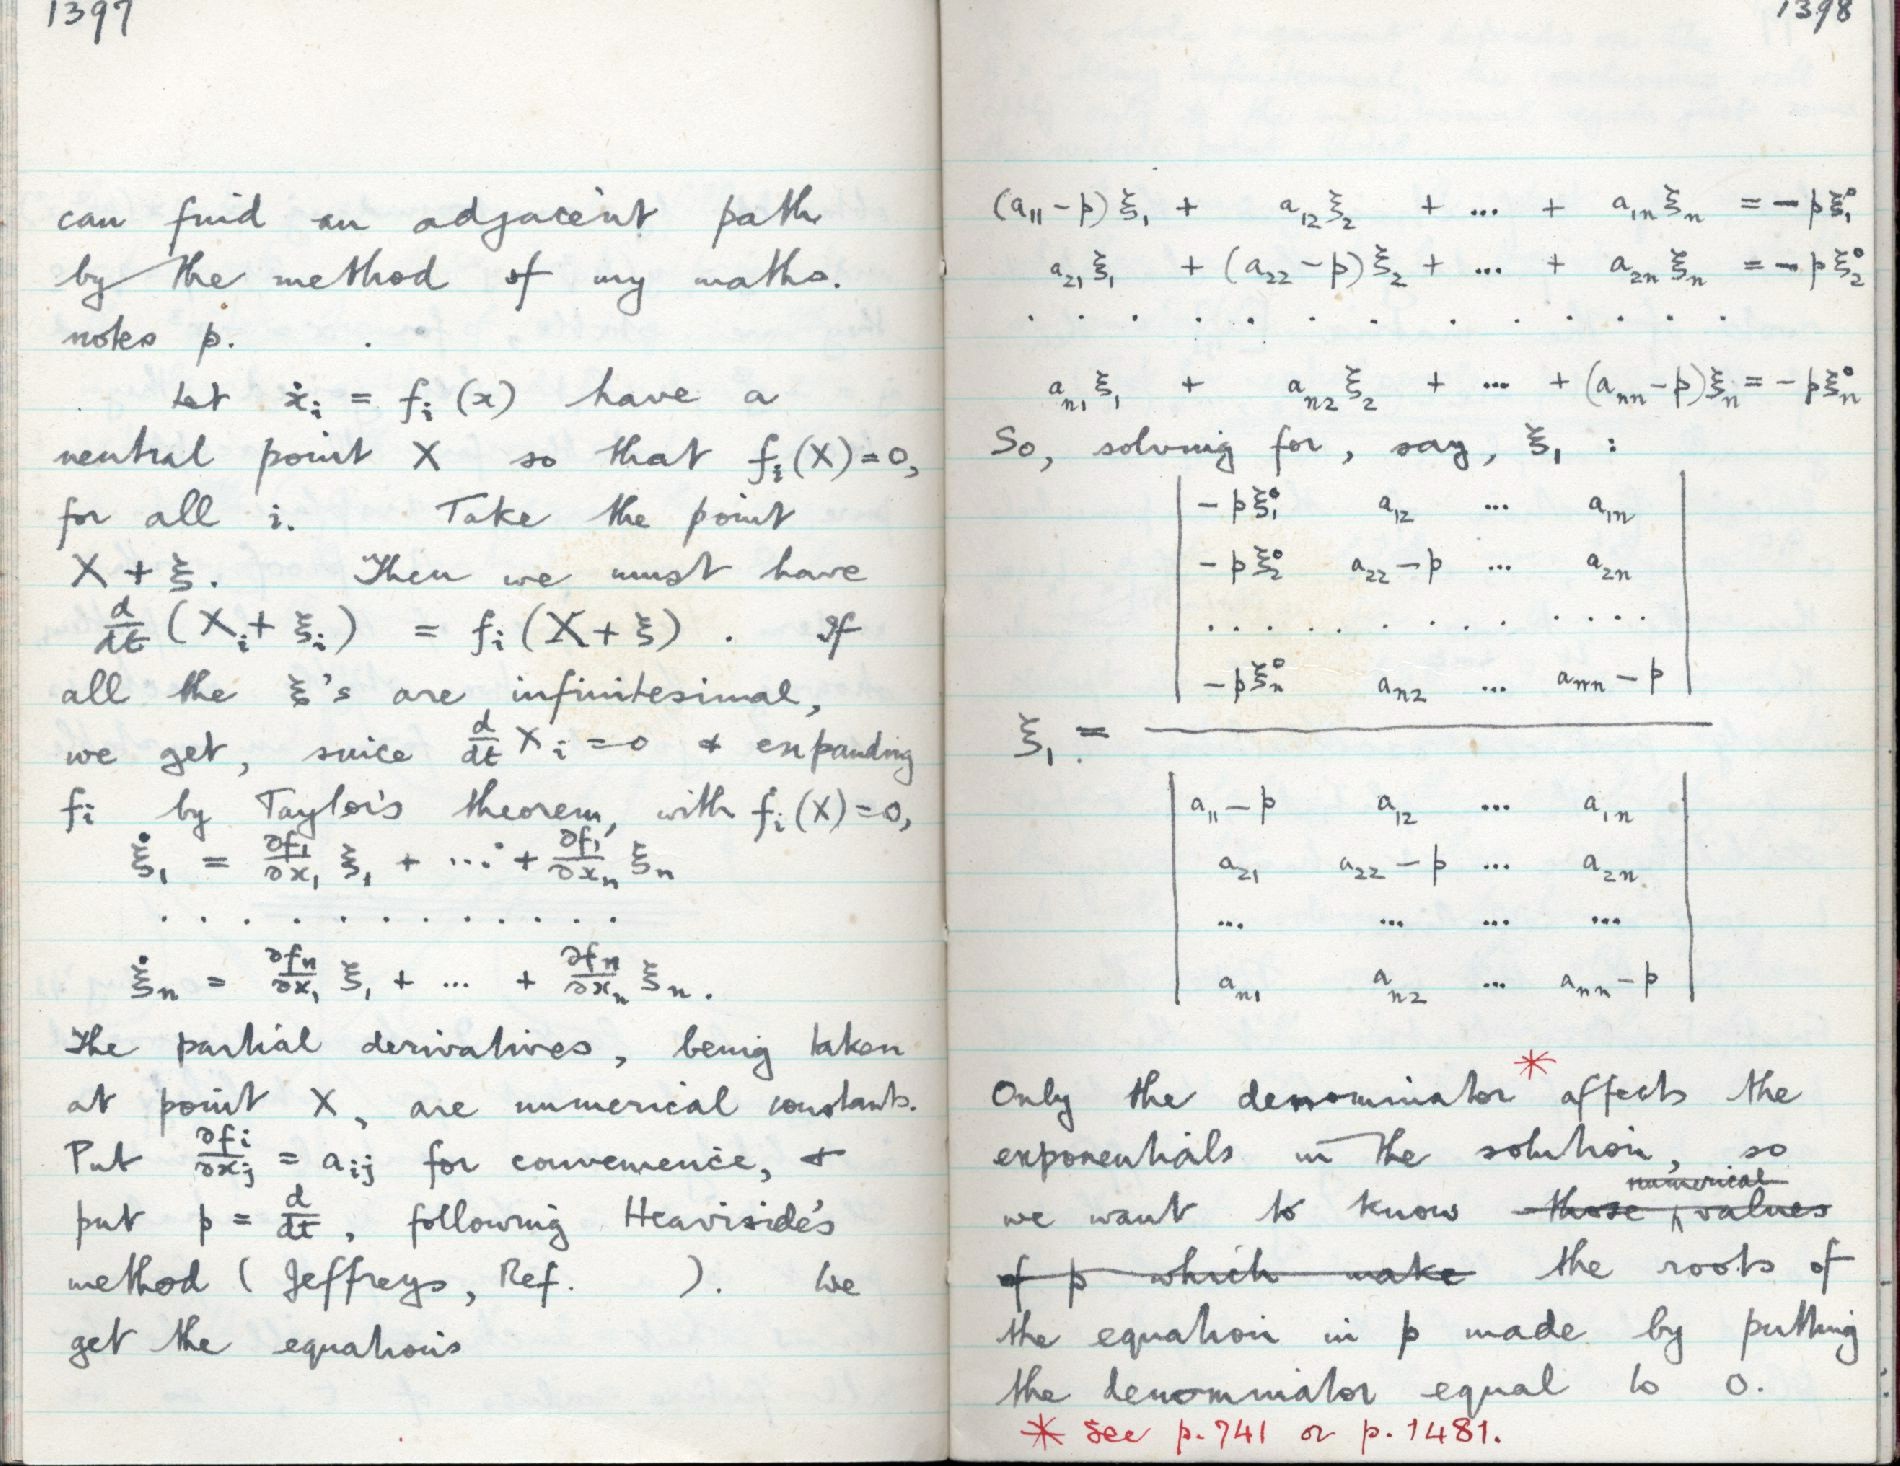 1397
can find an adjacent path
by the method of my maths.
notes p. .
Let ẋᵢ = fᵢ(x) have a
neutral point X so that fᵢ(X)=0,
for all i. Take the point
X+ξ. Then we must have
d/dt (Xᵢ+ ξᵢ) = fᵢ(X+ξ). If
all the ξ's are infinitesimal,
we get, since d/dt Xᵢ =0 & expanding
fᵢ by Taylor's theorem, with fᵢ(X)=0,
ξ̇₁ = ∂f₁/∂x₁ ξ₁ + ... + ∂f₁/∂xₙ ξₙ
. . . . . . . . . . . .
ξ̇ₙ = ∂fₙ/∂x₁ ξ₁ + ... + ∂fₙ/∂xₙ ξₙ.
The partial derivatives, being taken
at point X, are numerical constants.
Put ∂fᵢ/∂xⱼ = aᵢⱼ for convenience, &
put p = d/dt, following Heaviside's
method (Jeffreys, Ref. ). We
get the equations
1398
(a₁₁-p)ξ₁ + a₁₂ξ₂ + ... + a₁ₙξₙ = -pξ₁⁰
a₂₁ξ₁ + (a₂₂-p)ξ₂ + ... + a₂ₙξₙ = -pξ₂⁰
. . . . . . . . . . . . .
aₙ₁ξ₁ + aₙ₂ξ₂ + ... + (aₙₙ-p)ξₙ = -pξₙ⁰
So, solving for, say, ξ₁ :
| -pξ₁⁰ a₁₂ ... a₁ₙ |
| -pξ₂⁰ a₂₂-p ... a₂ₙ |
| . . . . . . . . . . . |
| -pξₙ⁰ aₙ₂ ... aₙₙ-p |
ξ₁ =
| a₁₁-p a₁₂ ... a₁ₙ |
| a₂₁ a₂₂-p ... a₂ₙ |
| ... ... ... ... |
| aₙ₁ aₙ₂ ... aₙₙ-p |
Only the denominator* affects the
exponentials in the solution, so
we want to know those numerical values
of p which make the roots of
the equation in p made by putting
the denominator equal to 0.
* See p.741 or p.1481.